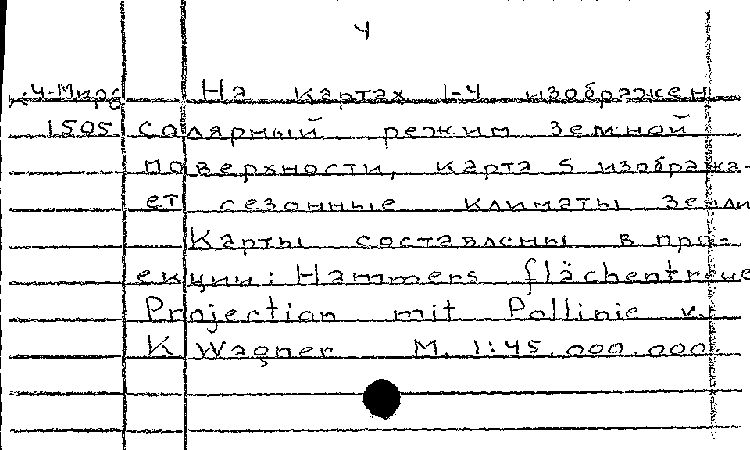 4
:4-Мирa На картах 1-4 изображен
1505 солярный режим земной
поверхности, карта 5 изобража-
ет сезонные климаты Земли
Карты составлены в про-
екции: Hammers flächentreue
Projection mit Pollinie v.
K Wagner M. 1:45.000.000.